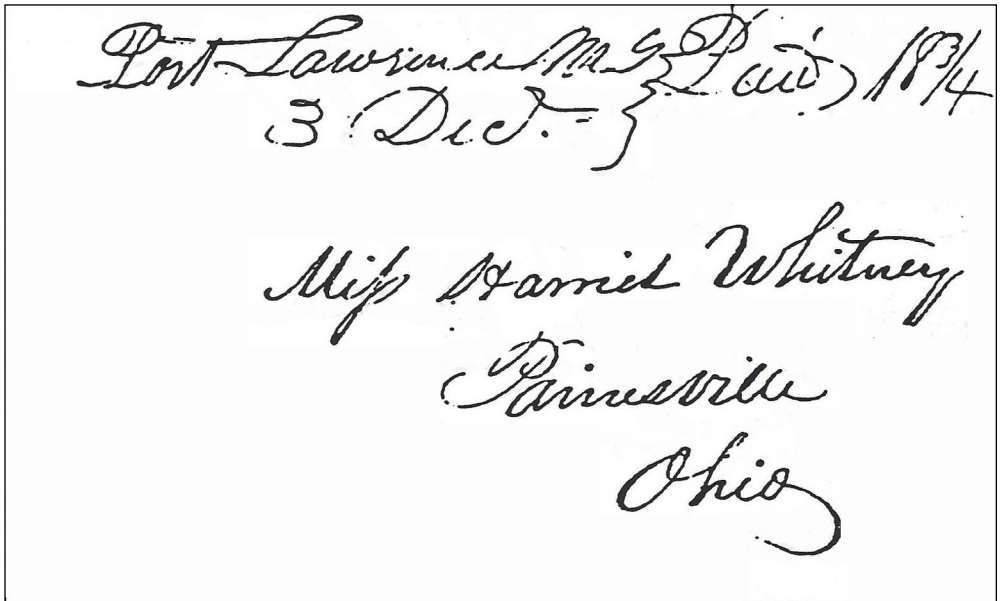 Port Lawrence M.T. } Paid 18 3/4
3 Dec. }
Miss Harriet Whitney
Painesville
Ohio